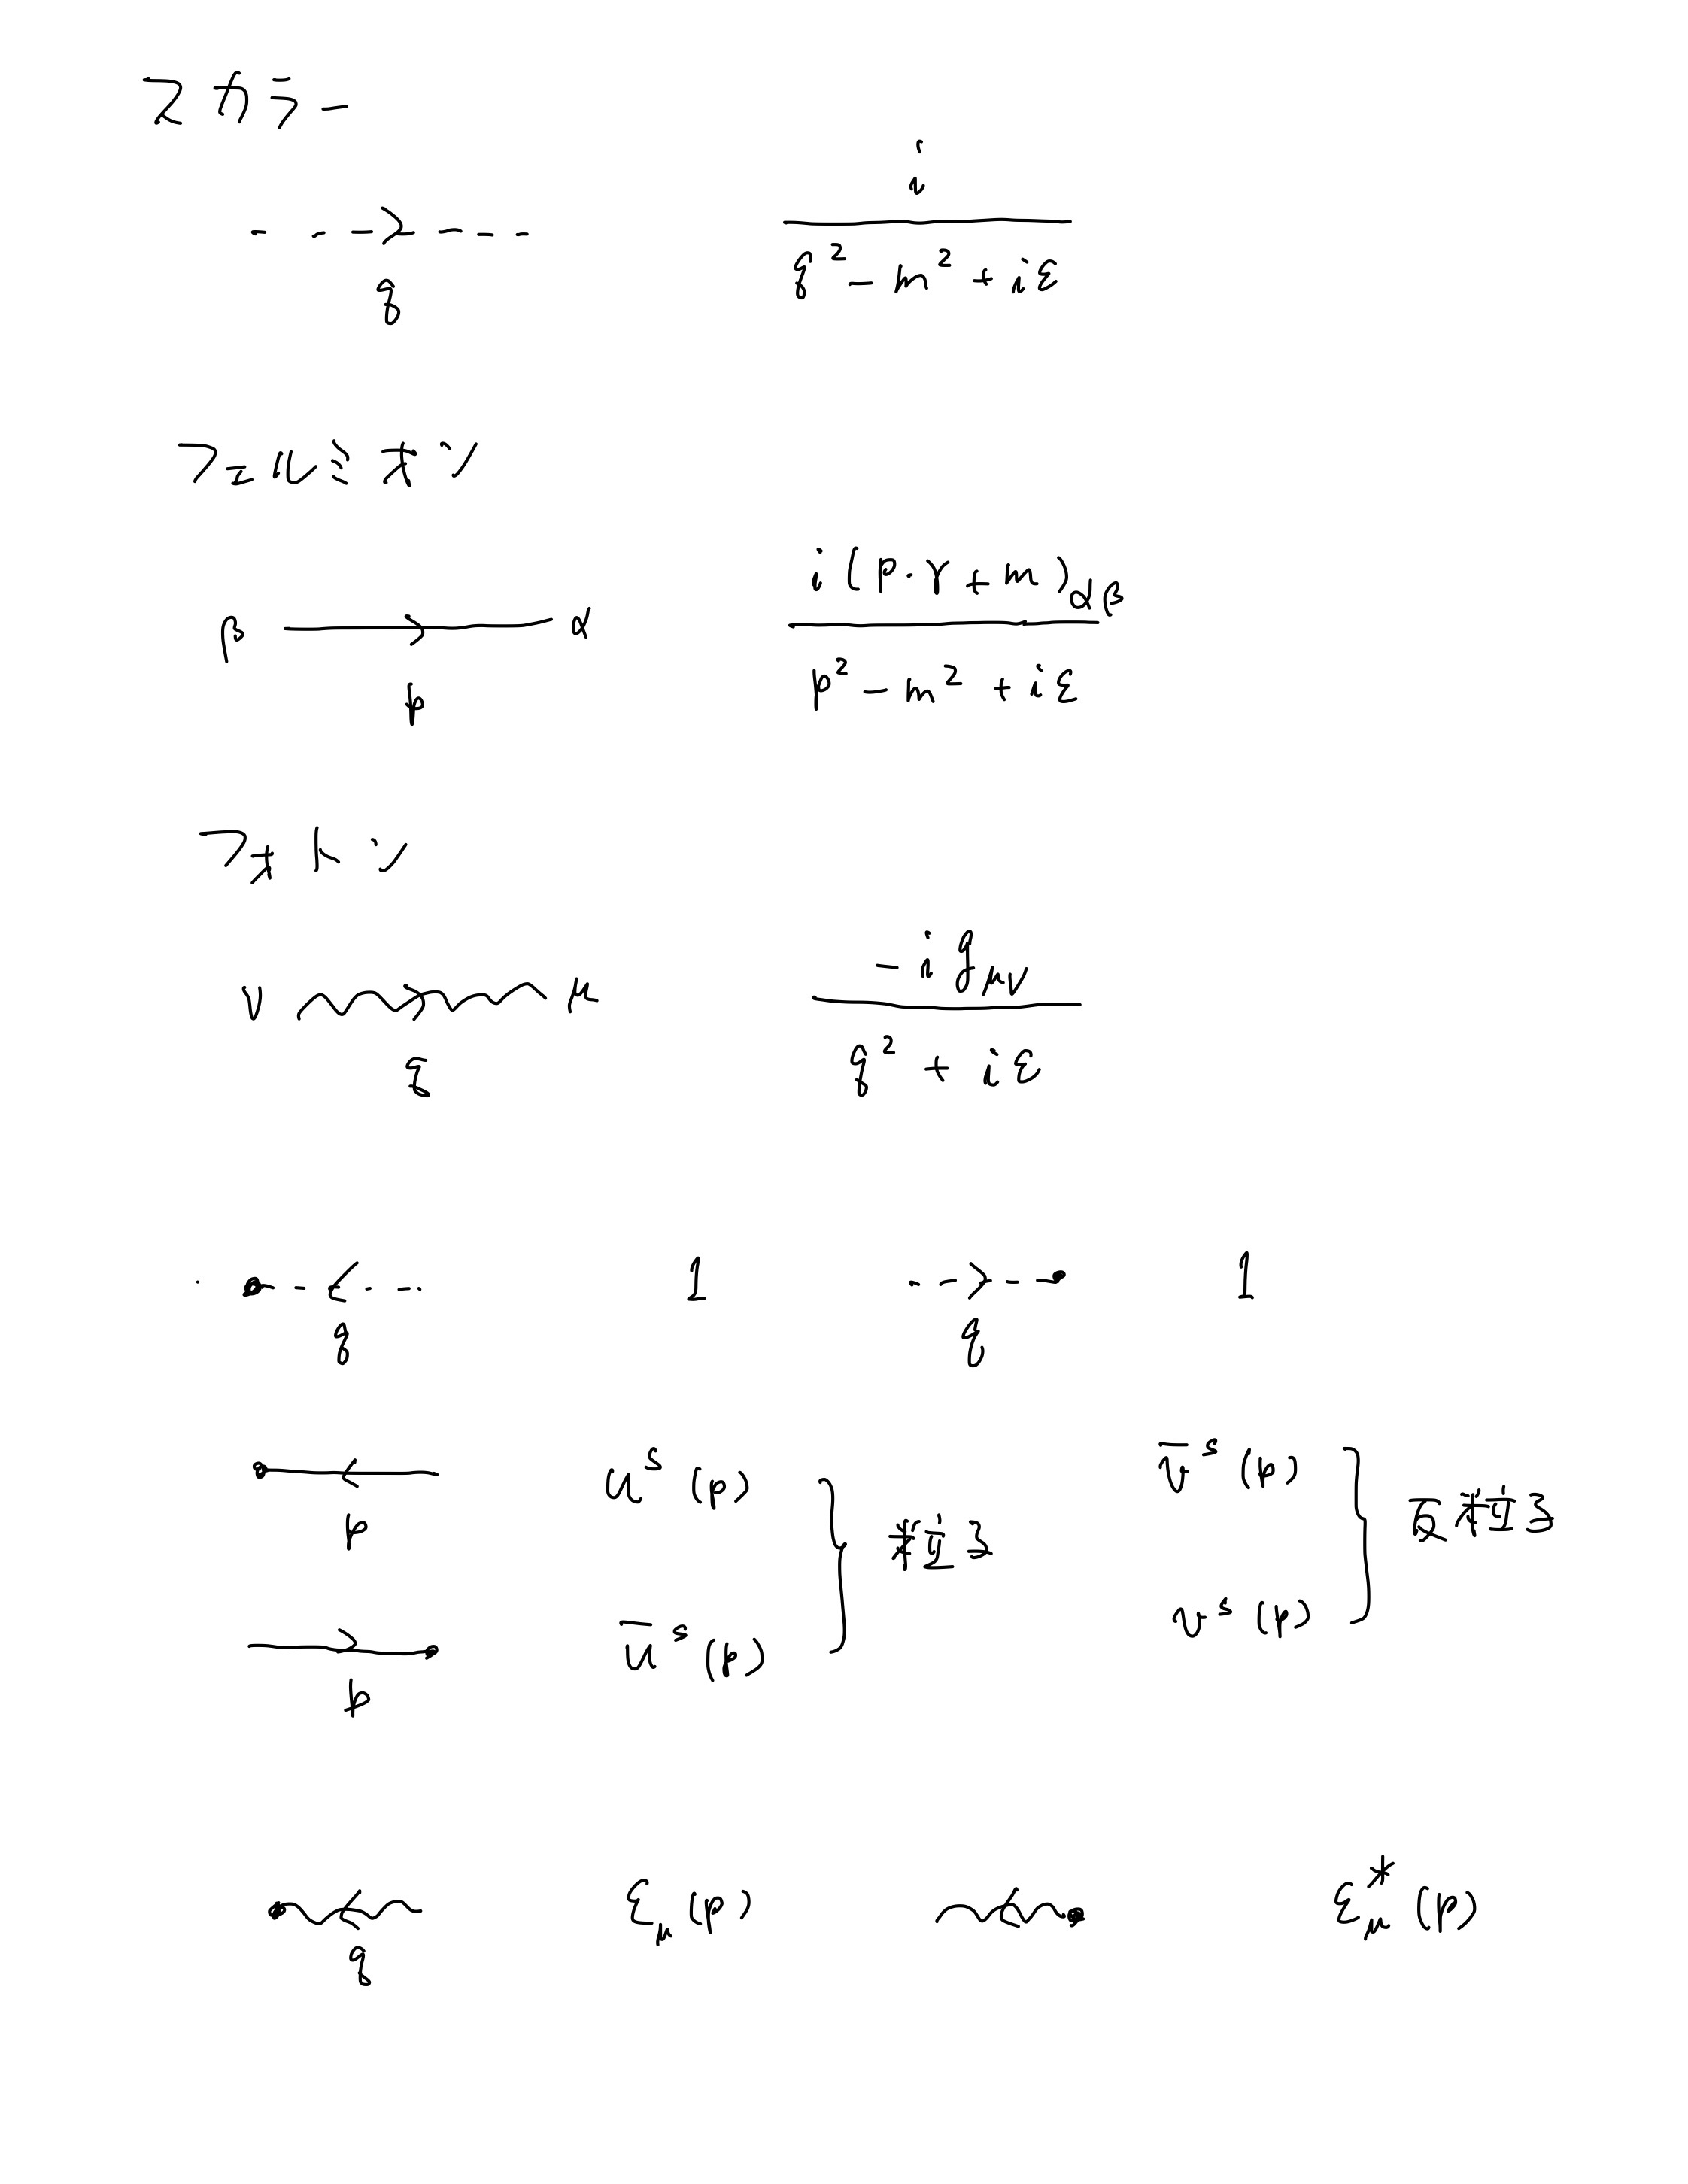 スカラー
q
i / (q² - m² + iε)
フェルミオン
β α
p
i(p·γ + m)αβ / (p² - m² + iε)
フォトン
ν μ
q
-i gμν / (q² + iε)
q 1 q 1
p uˢ(p) v̄ˢ(p)
粒子 反粒子
p ūˢ(p) vˢ(p)
q εμ(p) εμ*(p)